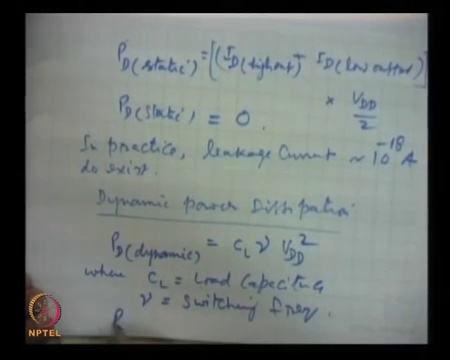 P_D(static) = [(I_D(high out) + I_D(low output)]
× V_DD/2
P_D(static) = 0.
In practice, leakage current ~ 10^-18 A
do exist.
Dynamic power Dissipation
P_D(dynamic) = C_L ν V_DD^2
where C_L = Load Capacitance
ν = Switching freq.
P
NPTEL